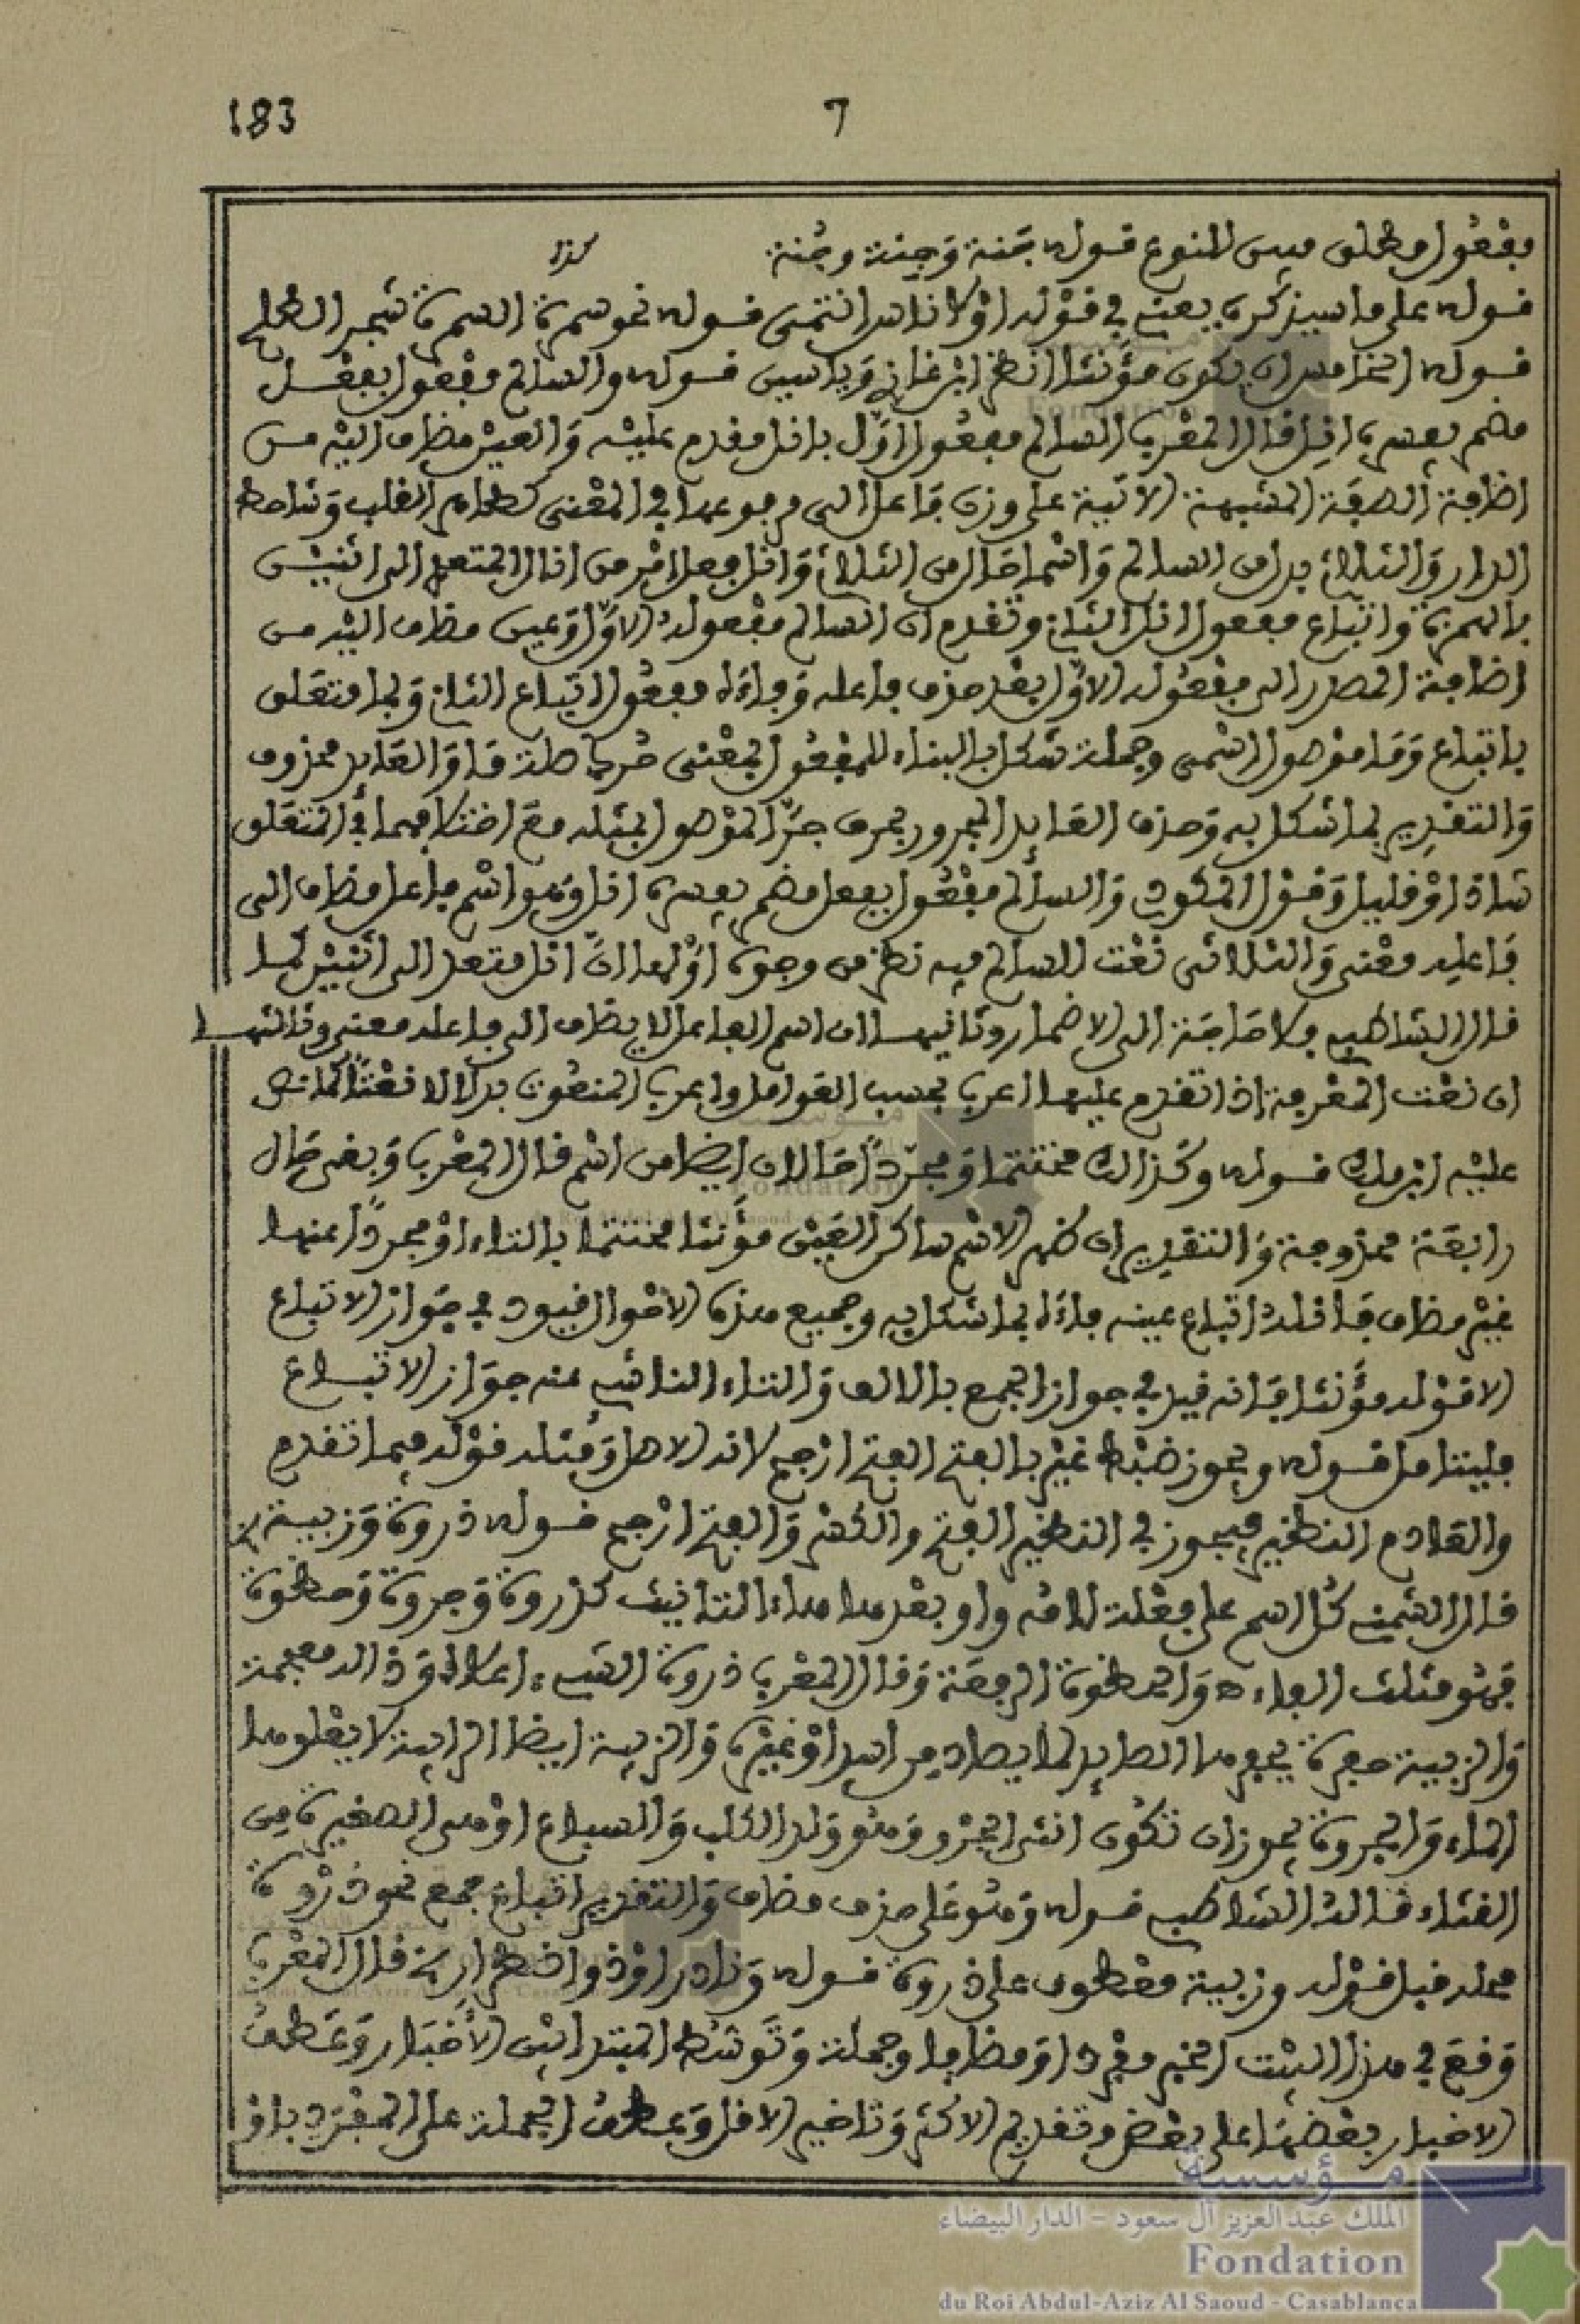 183 7
مفعول مطلق مبين للنوع قوله جَنة وَجِنة وجُنة كذا
قوله على ما سيذكره يعني في قوله اوْ لاناس انتمى قوله نحو سمرة السمرة شجر الطلح
قوله الخامس ان يكون مؤنثا انظر ابن غازي وَياسين قوله والسالم مفعول بفعل
مضمر يفسره انل قال المعْرب السالم مفعول اوّل بانل مقدم عليْه وَالعيْن مضاف اليْه من
اضافة الصفة المشبهة الاتية على وزن فاعل الى مرفوعها في المعْنى كطاهر القلب وَشاحط
الدار وَالثلاثي بدل من السالم وَاسْما حَال من الثلاثي وَانل فعل امْر من انال المتعدي الى اثنيْن
بالهمزة واتباع مفعول انل الثاني وتقدم ان السالم مفعوله الاوّل وَعين مضاف اليْه من
اضافة المصدر الى مفْعوله الاوّل بعْد حذف فاعله وَفاءَه مفعول اتباع الثاني وَبما متعَلق
باتباع وَمَا موْصول اسْمى وجملة شكل بالبناء للمفْعول بمعْنى حُرك صلة مَا وَالعَايد محذوف
وَالتقدير بما شكل به وَحذف العَايد المجرور بحرف جرّ الموْصول بمثله مع اختلافهما في المتعَلق
شاذ اوْ قليل وَقوْل المكودي وَالسالم مفعُول بفعل مضمر يفسره انل وَهو اسْم فاعل مضاف الى
فاعله معْنى وَالثلاثى نعْت للسالم فيه نظر من وجوه اوْلها انّ انل متعد الى اثنيْن لما
قال الشاطبي فلا حَاجَة الى الاضمار وثانيها ان اسم الفاعل لا يضاف الى فاعله معنى وثالثها
ان نعْت المعْرفة اذا تقدم عليها اعرب بحسب العَوامل واعرب المنعوت بدلا لا نعْتًا كما نص
عليْه ابن مالك قوله وكَذلك مختتما اوَ مجرّدًا حَالان ايضا من اسْم قال المعْرب وَبقى حَال
رابعَة محذوفة وَالتقدير ان ظهر الاسْم ساكن العَيْن مؤَنثا مختتما بالتاء اوْ مجردًا عنها
غيْر مضاف فَانله اتباع عينه فاءَه بما شكل به وجميع هذه الاحْوال قيود في جَواز الاتباع
الا قوْله مؤَنثا فَانه قيد في جواز الجمع بالالف وَالتاء الناشي عنه جوَاز الاتباع
فليتامل قوله ويجوز ضبْط غيْر بالفتح الفتح ارْجح لانه الاصل وَمثله قوْله فيما تقدم
والعَادم النظير فيجوز في النظير الفتح والكسْر وَالفتح ارْجح قوله ذروة وَزبية
قال الشمني كُل اسم على فعْلة لامُه واو بعْدها هاء التانيث كذروة وَجروة وَحظوة
فهُو مثلث الفاء ه وَالحظوة الرفعَة وَقال المعْرب ذروة الشيء اعلاه وَذاله معجمة
وَالزبية حفرة يحفرها الصايد لما يصاد من اسد اوْ غيْره وَالزبية ايضا الرابية لا يعْلوها
الماء وَالجروة يجوز ان تكُون انثى الجرْو وَهو وَلد الكلب وَالسباع اوْ هى الصغيرة من
القثاء قَاله الشاطبي قوله وَهُو عَلى حذف مضاف وَالتقدير اتباع جمع نحو ذرْوة
محله قبل قوْله وزبية معْطوف على ذروة قوله وَنادر اوْ ذو اضطرار قال المعْرب
وَقعَ في هذا البيْت الخبر مفْردا وَمضافا وجملة وَتَوسّط المبتدا بيْن الأخبَار وَعَطفُ
الاخبار بعْضهَا على بعْض وتقديم الاكثر وَتاخير الاقل وَعطفُ الجملة على المفْرَد باوْ
مؤسسة
الملك عبد العزيز آل سعود - الدار البيضاء
Fondation
du Roi Abdul-Aziz Al Saoud - Casablanca